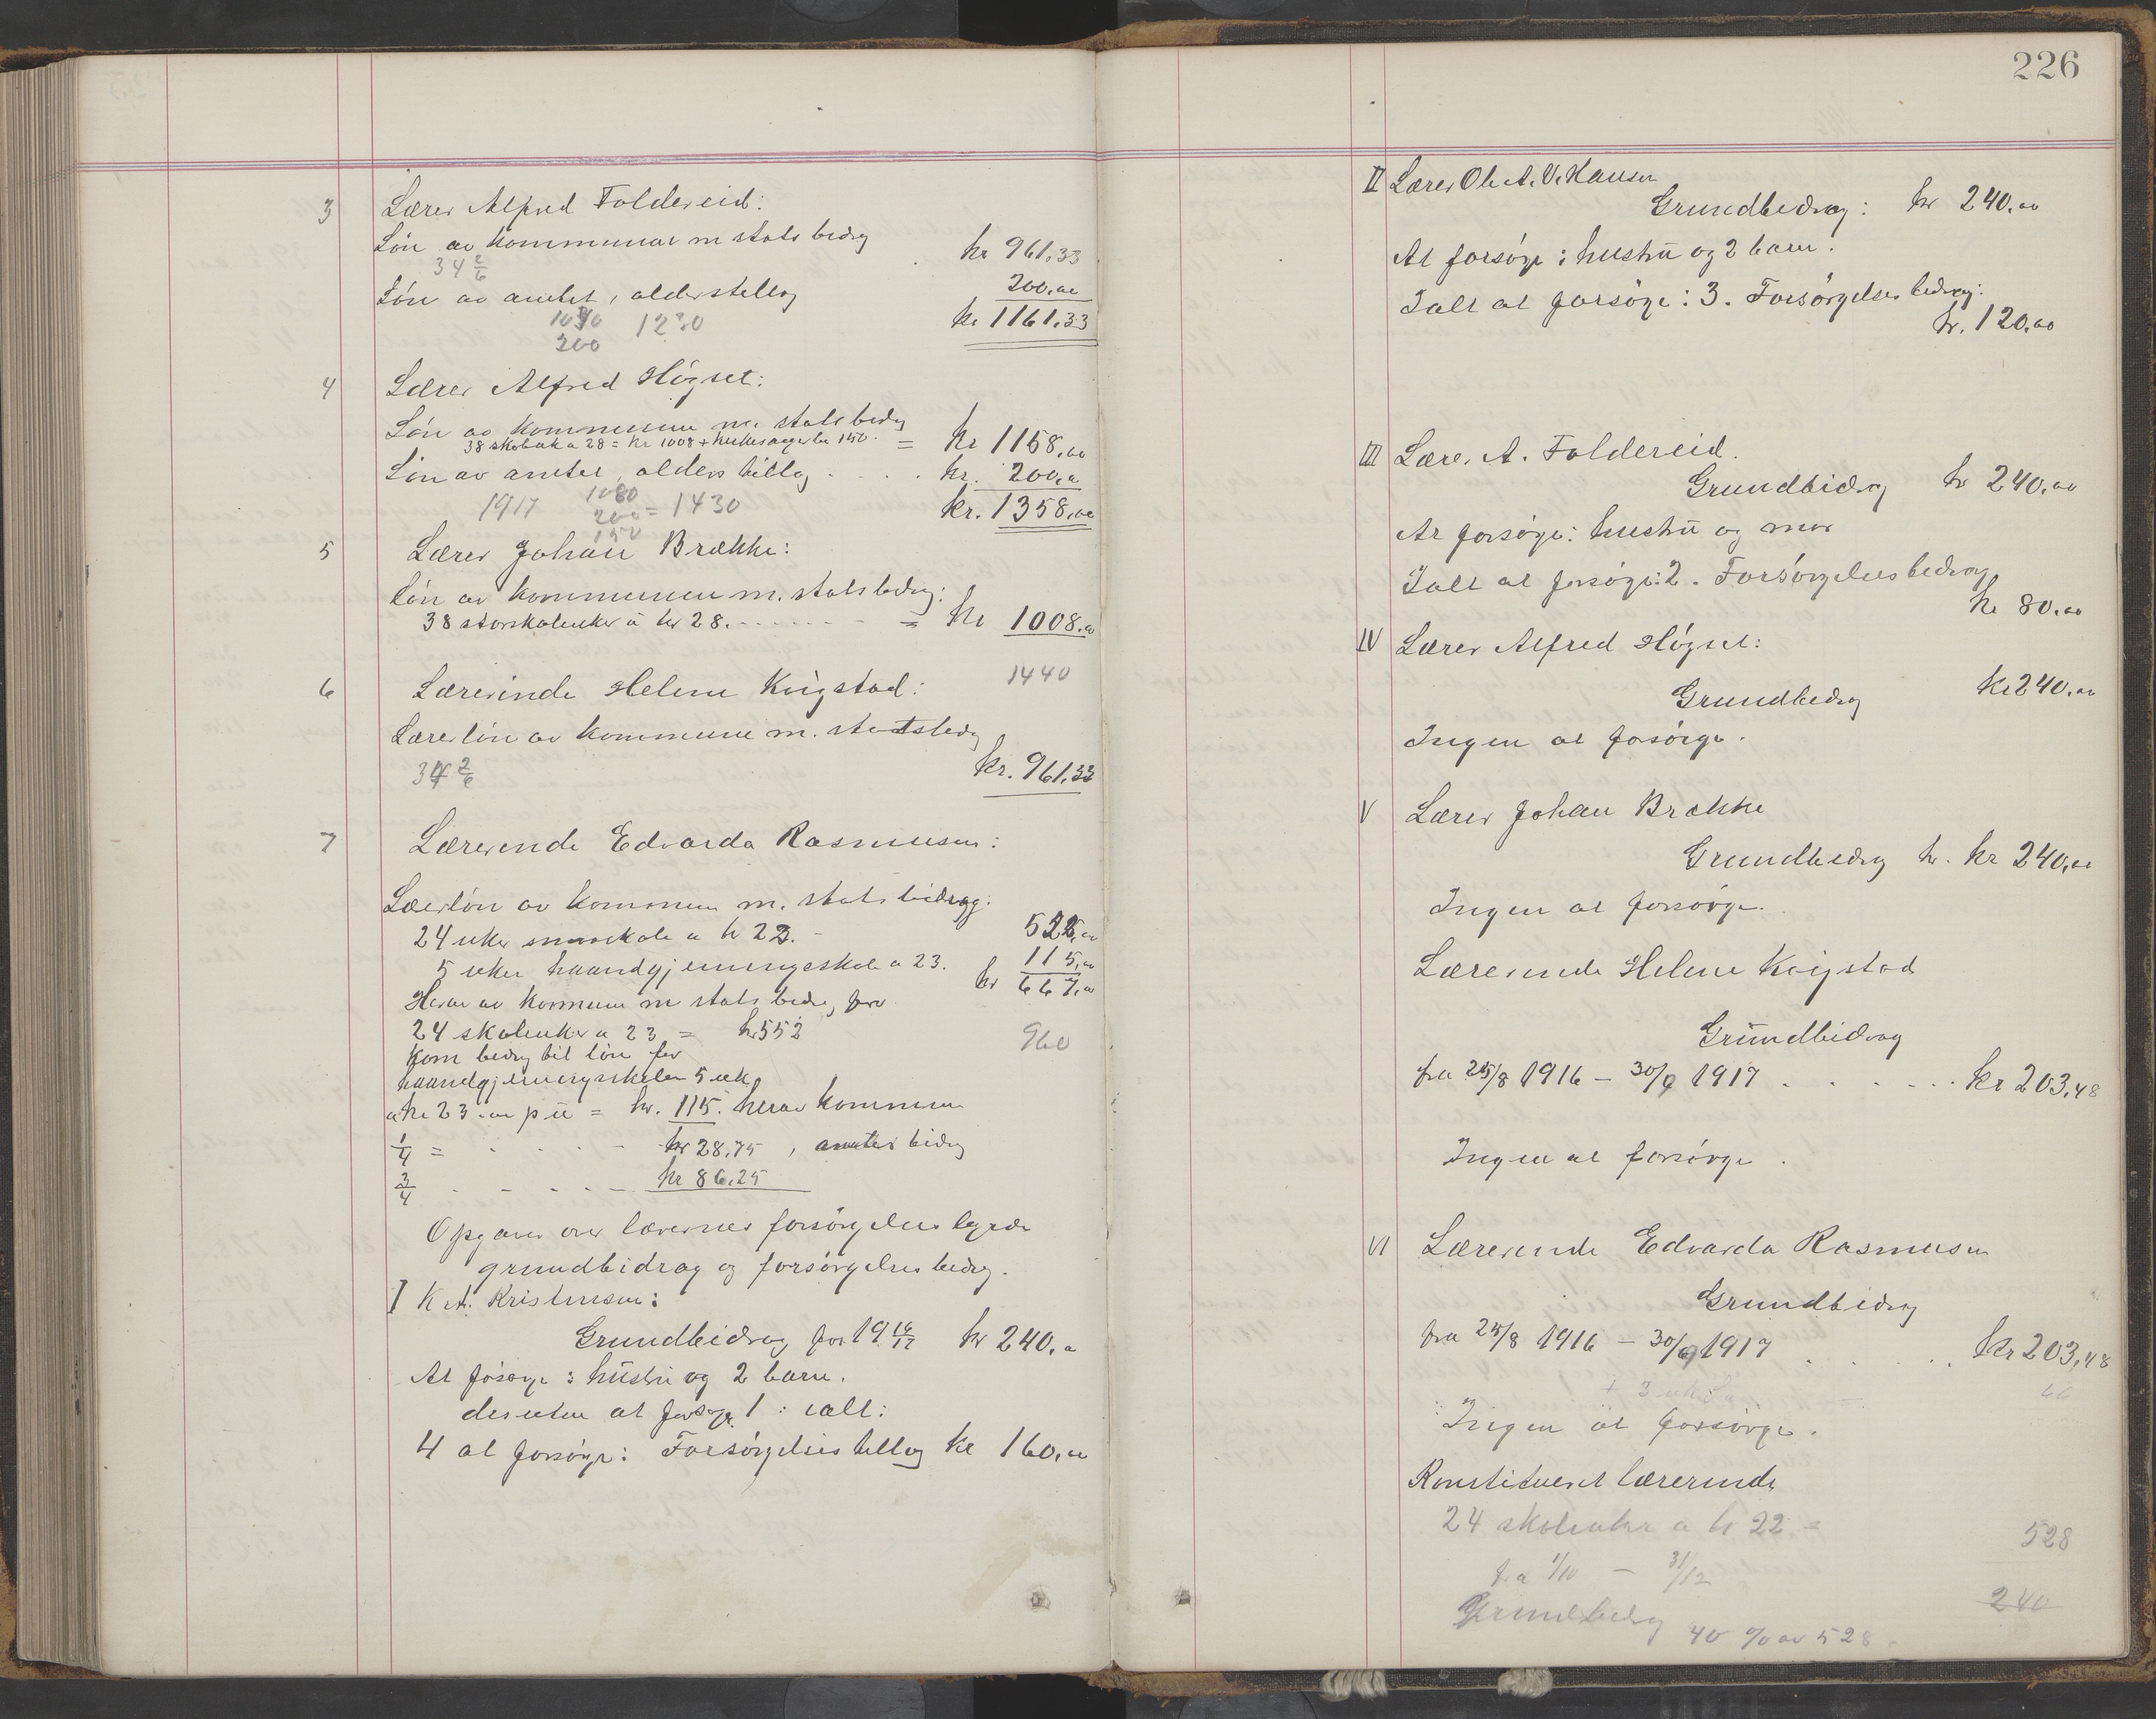 3 Lærer Alfred Foldereid:
Løn av kommunen m statsbidrag kr 961,33
34 2/6
Løn av amtet, alderstillæg 200,00
1030 1230 kr 1161,33
200
4 Lærer Alfred Høgset:
Løn av kommunen m. statsbidrag
38 skoleuker a 28 = kr 1008 + kirkesanger løn 150. = kr 1158,00
Løn av amtet, alderstillæg . . . kr. 200,00
1917 1080 kr. 1358,00
200 = 1430
150
5 Lærer Johan Brække:
Løn av kommunen m. statsbidrag:
38 storskoleuker à kr 28. - - - - - = kr 1008.00
1440
6 Lærerinde Helene Kvigstad:
Lærerløn av kommune m. statsbidrag
34 2/6 kr. 961,33
7 Lærerinde Edvarda Rasmusen:
Lærerløn av kommunen m. statsbidrag:
24 uker småskole a kr 23. - 552,00
5 uker haandgjerningsskole a 23. 115,00
kr 667,00
Herav av kommune m statsbidrag for
24 skoleuker a 23 = kr 552 960
Kom bidrag til løn for
haandgjerningsskolen 5 uk
a kr 23.00 p u = kr. 115. herav kommunen
1/4 = - - - - kr 28,75, amtets bidrag
3/4 - - - - kr 86,25
Opgave over lærernes forsørgelsesbyrde
grundbidrag og forsørgelsesbidrag.
I K. A. Kristensen:
Grundbidrag for 19 16/17 kr 240,00
At forsørge: hustru og 2 barn.
desuten at forsørge 1: ialt:
4 at forsørge: Forsørgelsestillæg kr 160,00
226
II Lærer Ole A. V. Hansen
Grundbidrag: kr 240,00
At forsørge: hustru og 2 barn.
Ialt at forsørge: 3. Forsørgelsesbidrag:
kr. 120,00
III Lærer A. Foldereid.
Grundbidrag kr 240,00
At forsørge: hustru og mor
Ialt at forsørge: 2. Forsørgelsesbidrag
kr 80,00
IV Lærer Alfred Høgset:
Grundbidrag kr 240,00
Ingen at forsørge.
V Lærer Johan Brække
Grundbidrag kr. kr 240,00
Ingen at forsørge.
Lærerinde Helene Kvigstad
Grundbidrag
fra 25/8 1916 - 30/9 1917 . . . . . kr 203,48
Ingen at forsørge.
VI Lærerinde Edvarda Rasmusen
Grundbidrag
fra 25/8 1916 - 30/9 1917 . . . . kr 203,48
+ 3 uk 66
Ingen at forsørge.
Konstitueret lærerinde
24 skoleuker a kr 22 = 528
fra 1/10 - 31/12
Grundbidrag 240
40 % av 528